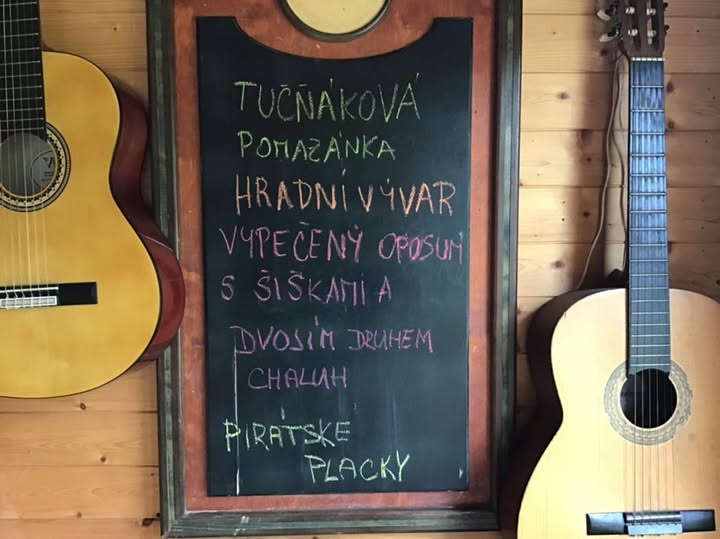 TUČŇÁKOVÁ
POMAZÁNKA
HRADNÍ VÝVAR
VYPEČENÝ OPOSUM
S ŠIŠKAMI A
DVOJÍM DRUHEM
CHALUH
PIRÁTSKÉ
PLACKY